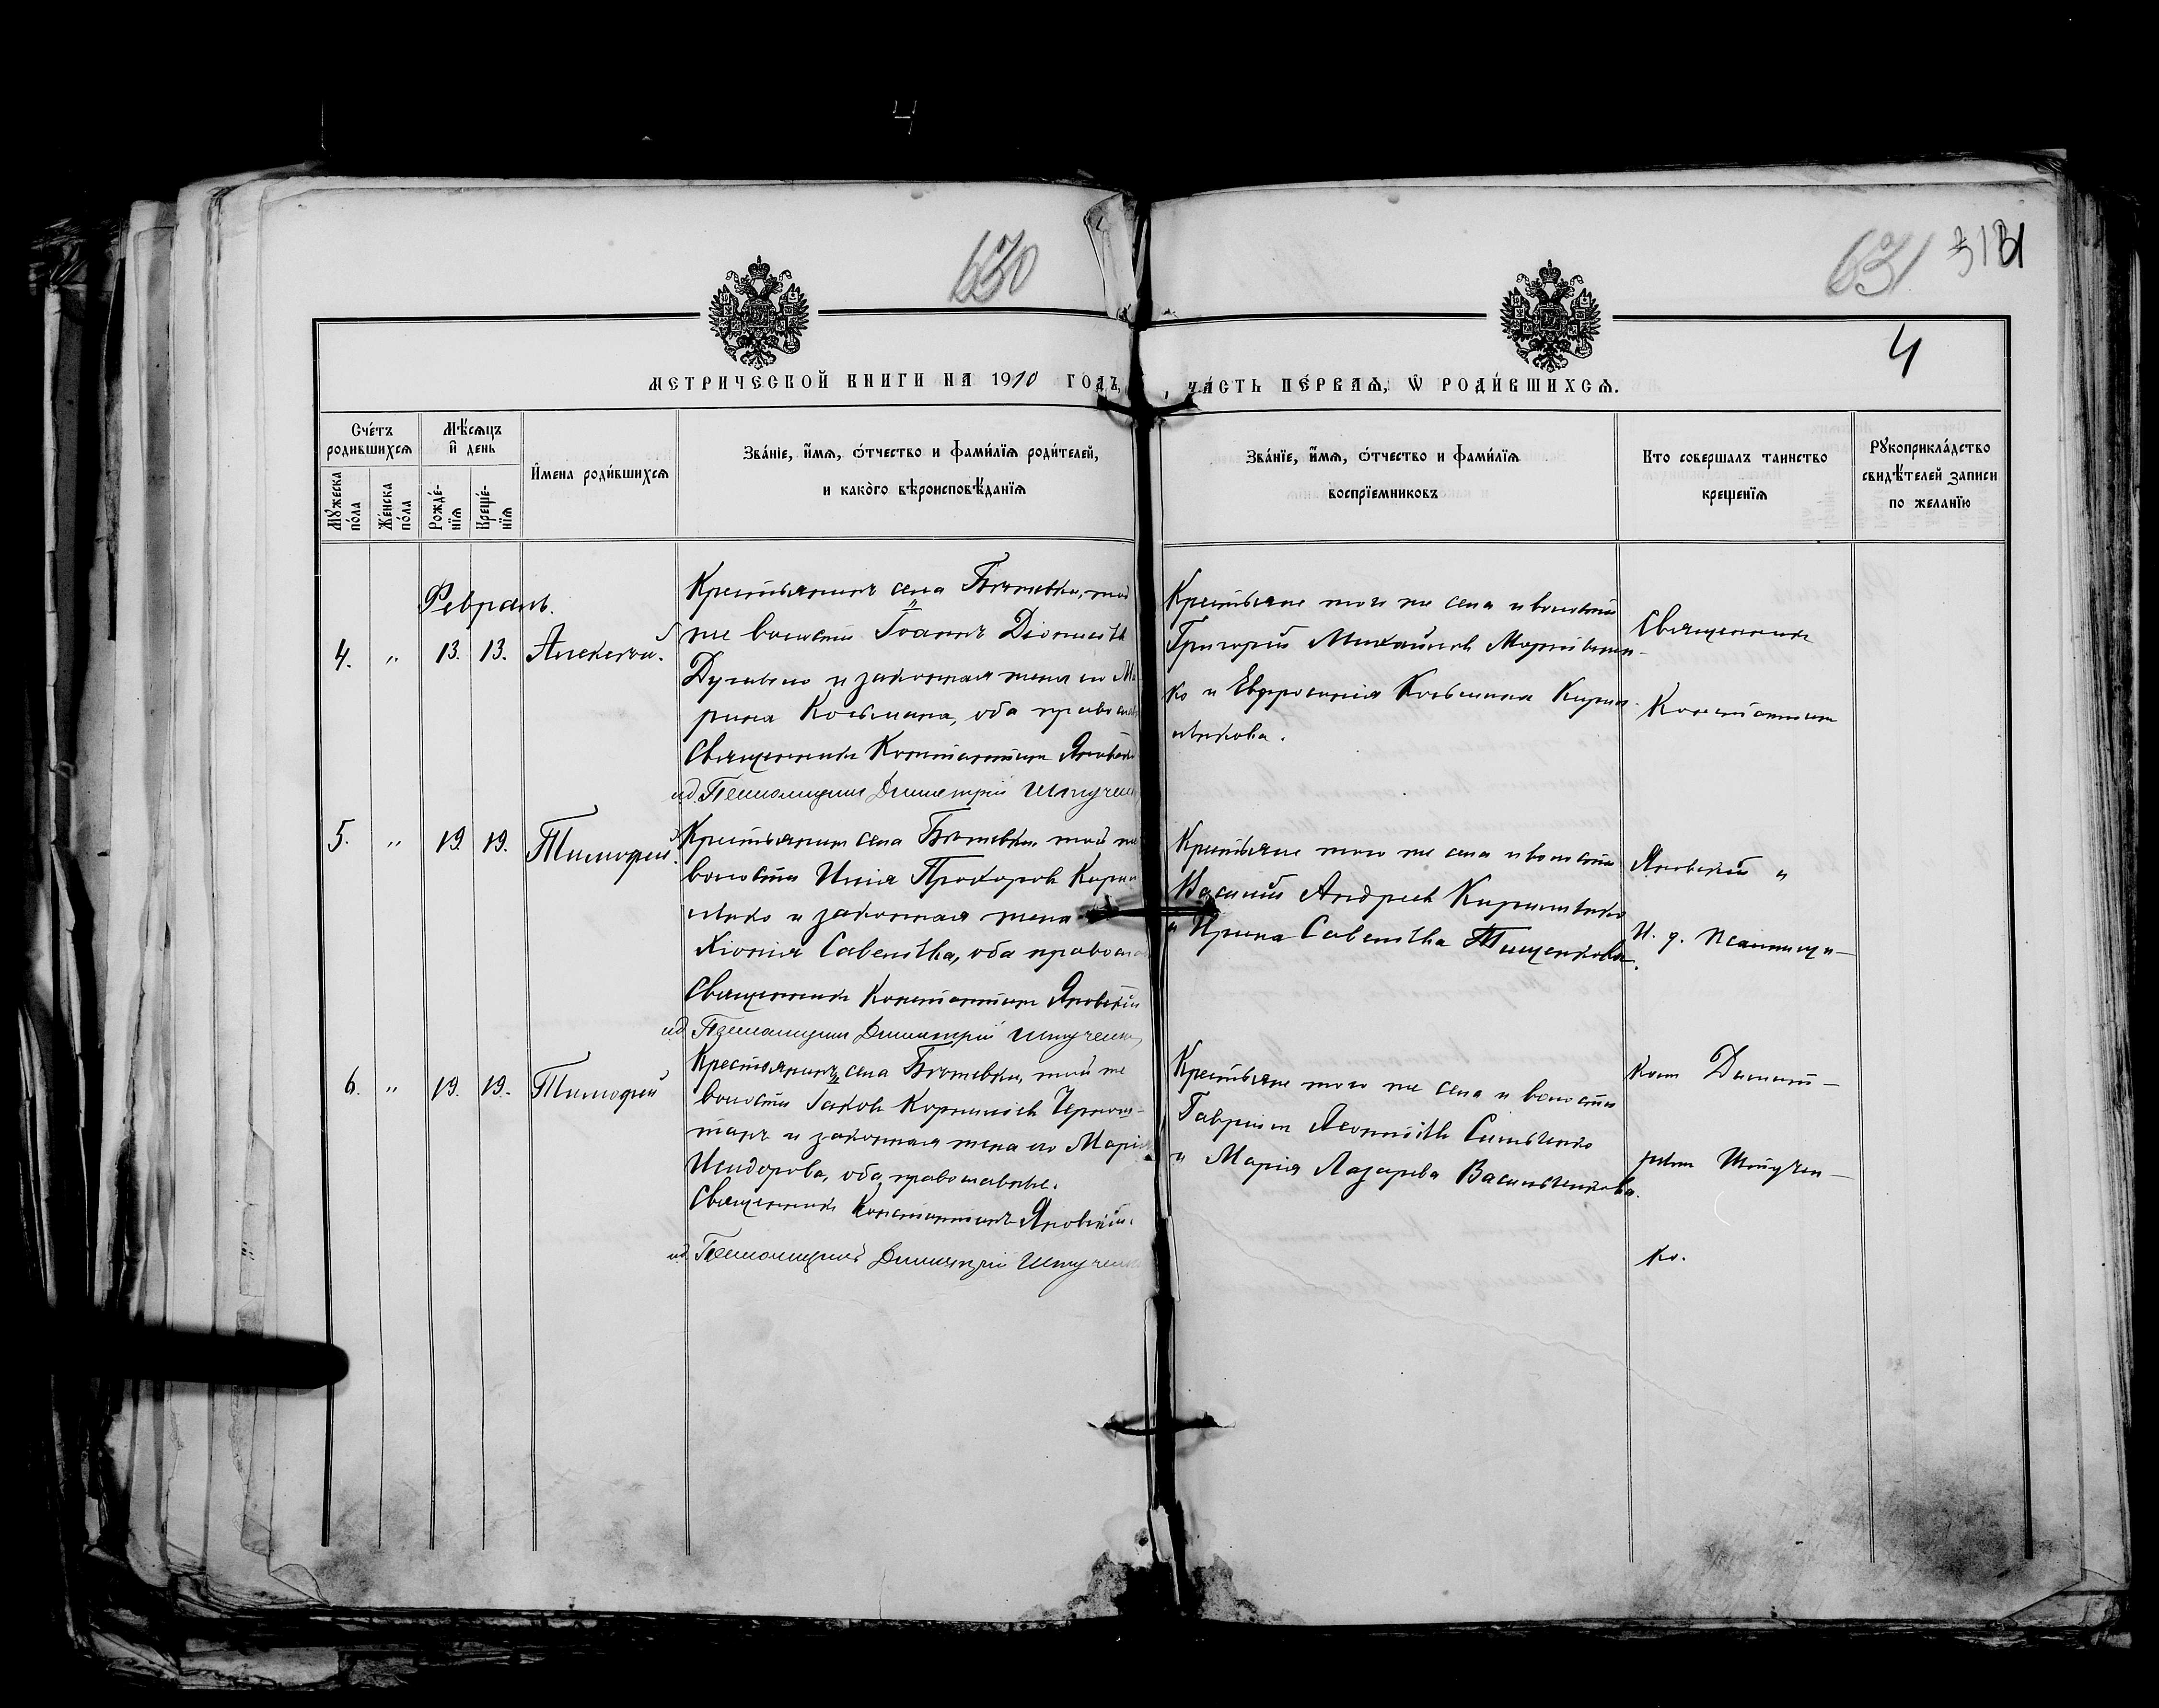 4
630
631
3131
4
МЕТРИЧЕСКОЙ КНИГИ НА 1910 ГОДЪ,
ЧА́СТЬ ПЕ́РВАѦ, Ѿ РОДИ́ВШИХСѦ.
Сче́тъ родившихсѧ
Мѣ́сѧцъ и҆ день
И҆мена роди́вшихсѧ
Зва́нїе, и҆́мѧ, ѻ҆́тчество и фами́лїѧ роди́телей,
и како́го вѣроисповѣ́данїѧ
Зва́нїе, и҆́мѧ, ѻ҆́тчество и фами́лїѧ
воспрїемниковъ
Кто совершалъ таинство
крещенїѧ
Рꙋкоприкла́дство
свидѣ́телей записи
по желанїю
Мꙋжеска по́ла
Же́нска по́ла
Рожде́-нїѧ
Креще́-нїѧ
Февраль.
4. „ 13. 13. Алексѣй.
Крестьянинъ села
же волости Іоаннъ Діонисіевъ
и законная жена его
рина Косьмина, оба
Священникъ Константинъ Яновскій
ид. Псаломщика Димитрій Штученко
Крестьяне того же села и волости
Григорій Михайловъ
ко и Евфросинія Косьмина Кирил-
ленкова.
Священникъ
Константинъ
5. „ 19. 19. Тимофей.
Крестьянинъ села той же
волости Илія Прохоровъ Кирил
ленко и законная жена
Хіонія Савельева, оба
Священникъ Константинъ Яновскій
ид. Псаломщика Димитрій Штученко
Крестьяне того же села и волости
Василій Андреевъ Кириленко
и Ирина Савельева Тищенкова.
Яновскій и
И. д. псаломщи-
6. „ 19. 19. Тимофей
Крестьянинъ села той же
волости Іаковъ Корниліевъ
и законная жена его Марія
Исидорова, оба православные.
Священникъ Константинъ Яновскій.
ид. Псаломщика Димитрій Штученко
Крестьяне того же села и волости
Гавріилъ Леонтіевъ Сильченко
и Марія Лазарева Васильченкова.
ка Димит-
рій Штучен-
ко.